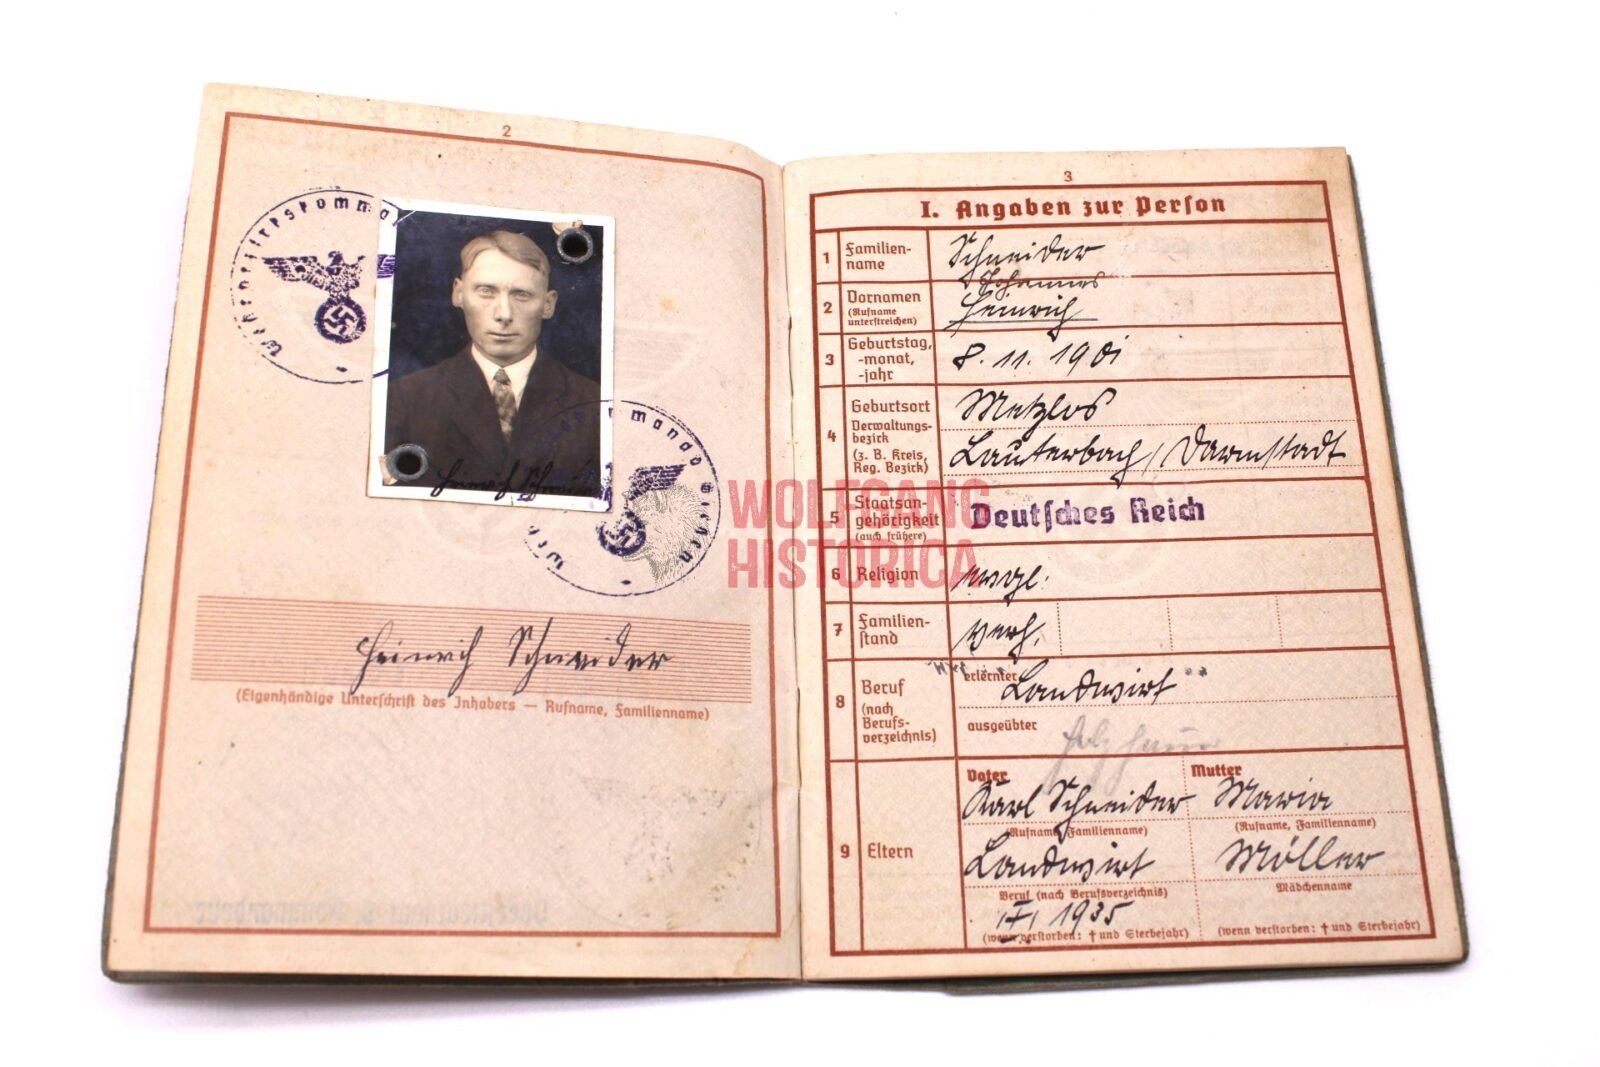 2
Wehrbezirkskommando
Heinrich Schneider
Wehrbezirkskommando Giessen
Heinrich Schneider
(Eigenhändige Unterschrift des Inhabers — Rufname, Familienname)
WOLFGANG
HISTORICA
3
I. Angaben zur Person
1 Familien-
name
Schneider
2 Vornamen
(Rufname
unterstreichen)
Johannes
Heinrich
3 Geburtstag,
-monat,
-jahr
8. 11. 1901
4 Geburtsort
Verwaltungs-
bezirk
(z. B. Kreis,
Reg. Bezirk)
Metzlos
Lauterbach / Darmstadt
5 Staatsan-
gehörigkeit
(auch frühere)
Deutsches Reich
6 Religion
evgl.
7 Familien-
stand
verh.
8 Beruf
(nach
Berufs-
verzeichnis)
erlernter
Landwirt
ausgeübter
9 Eltern
Vater
Karl Schneider
(Rufname, Familienname)
Landwirt
Beruf (nach Berufsverzeichnis)
1935
(wenn verstorben: † und Sterbejahr)
Mutter
Maria
(Rufname, Familienname)
Möller
Mädchenname
(wenn verstorben: † und Sterbejahr)